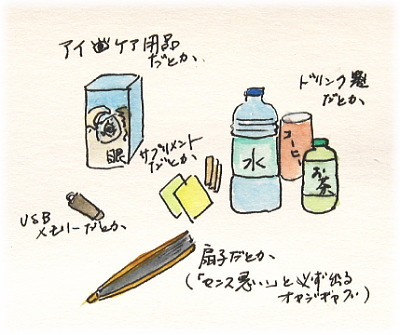 アイケア用品
だとか、
ドリンク類
だとか、
眼
サプリメント
だとか、
水
コーヒー
お茶
USB
メモリーだとか、
扇子だとか、
(「センス悪い」と必ず出る
オヤジギャグ)